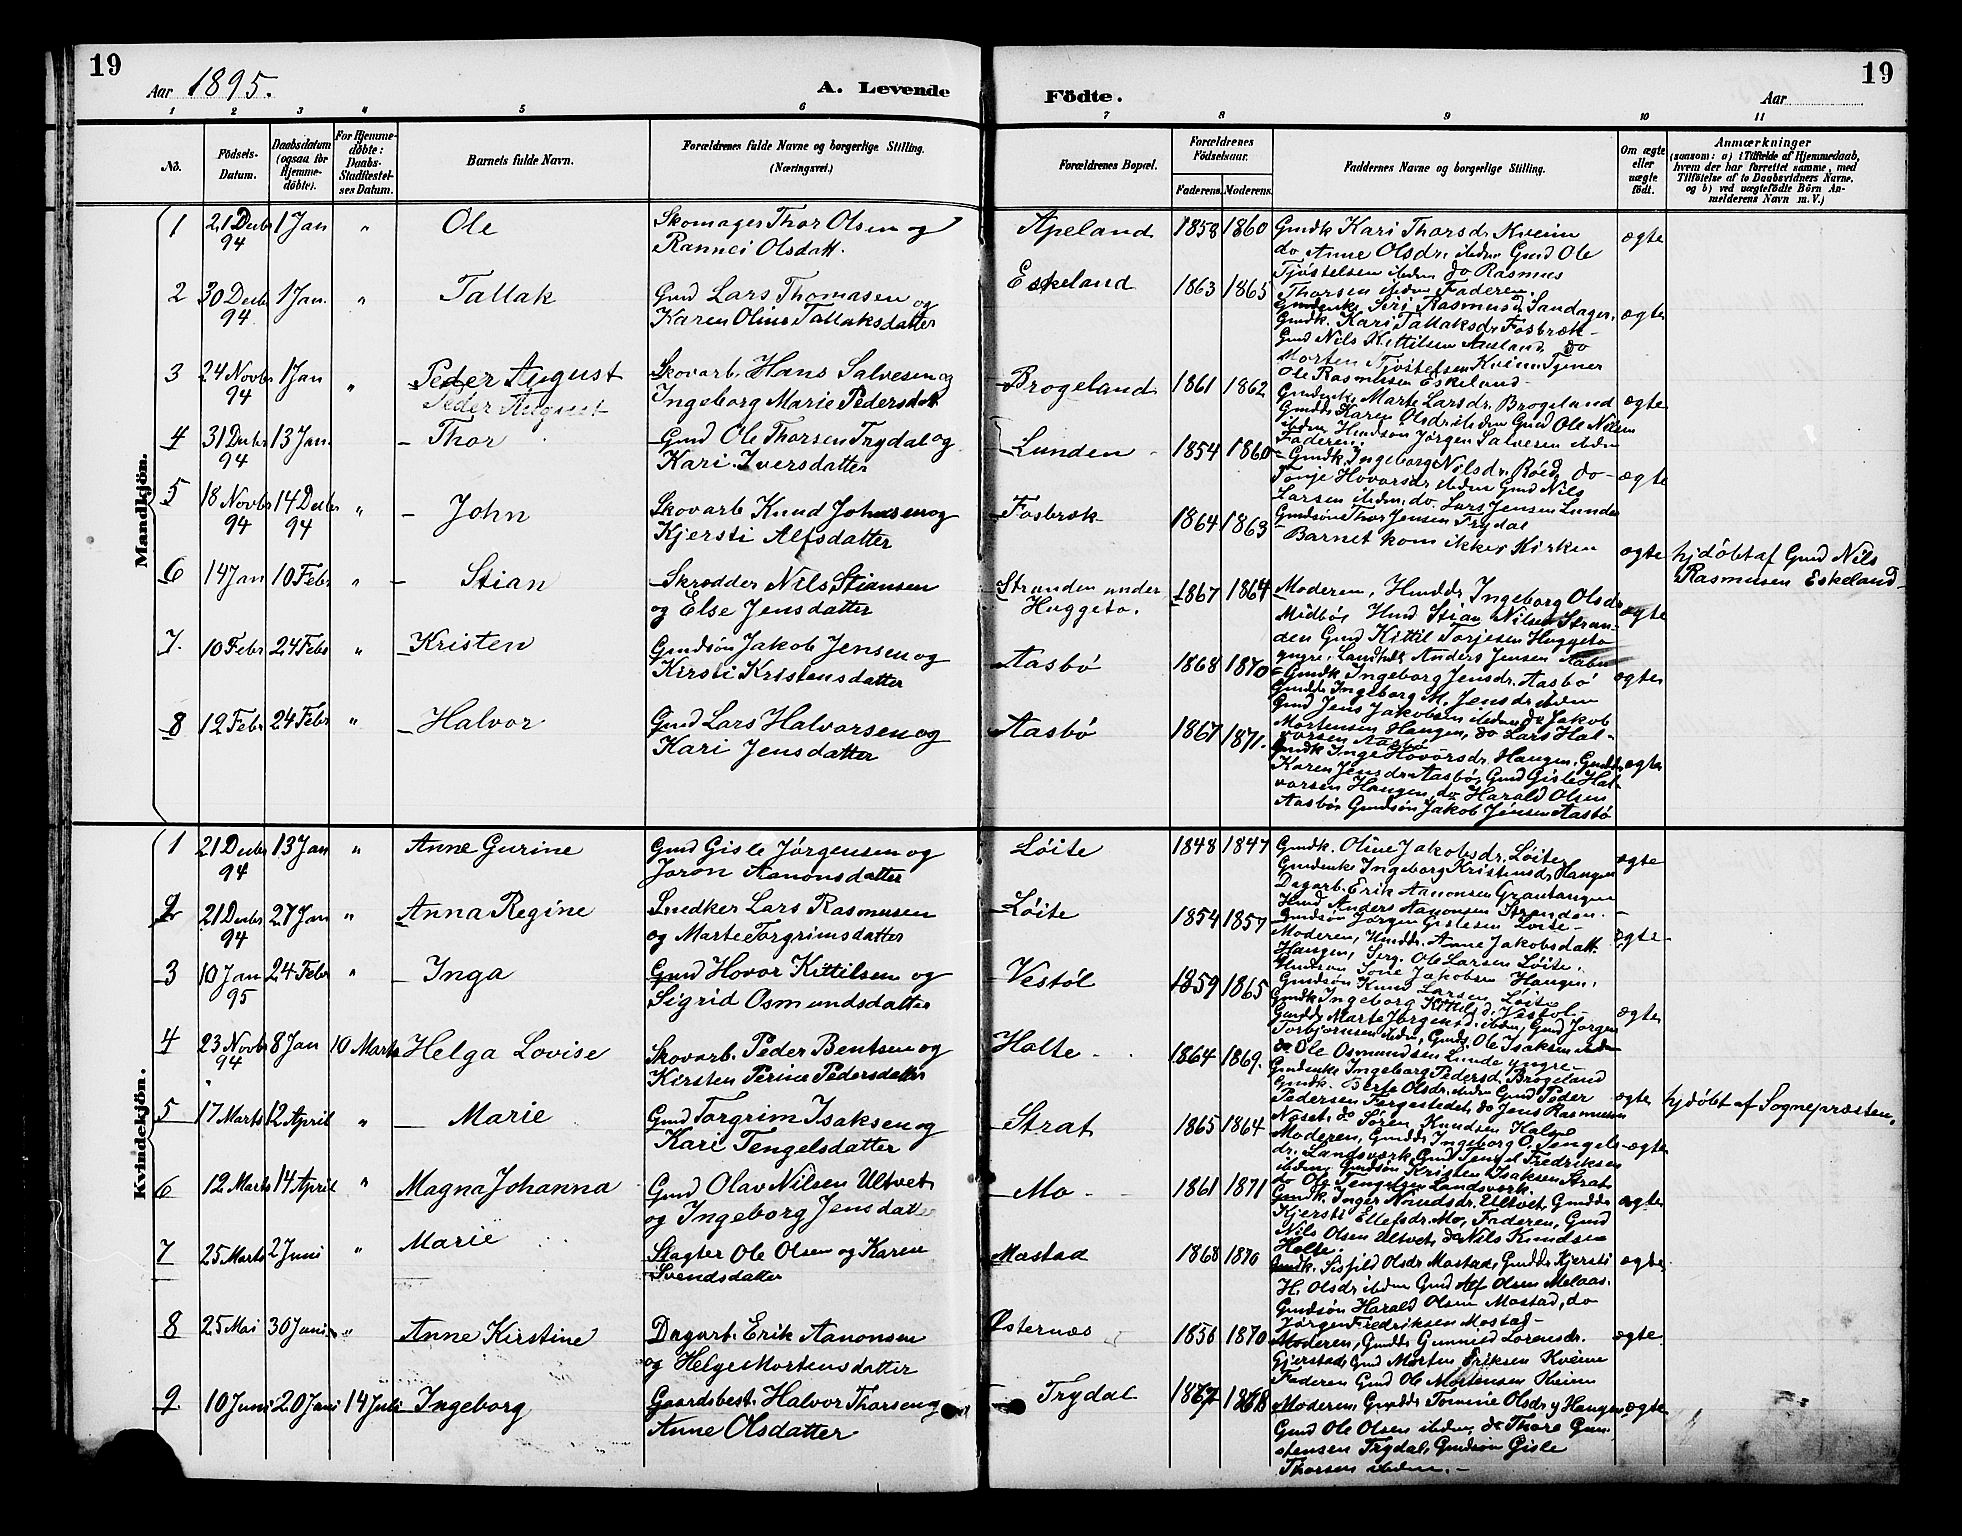 19
Aar 1895.
A. Levende
Födte.
Aar
19
1 2 3 4 5 6 7 8 9 10 11
No.
Födsels-Datum.
Daabsdatum (ogsaa for Hjemmedöbte).
For Hjemmedöbte: Daabs-Stadfæstelses Datum.
Barnets fulde Navn.
Forældrenes fulde Navne og borgerlige Stilling. (Næringsvei.)
Forældrenes Bopæl.
Forældrenes Födselsaar.
Faderens. Moderens.
Faddernes Navne og borgerlige Stilling.
Om ægte eller uægte födt.
Anmærkninger
(saasom: a) i Tilfælde af Hjemmedaab, hvem der har forrettet samme, med Tilföielse af to Daabsvidners Navne, og b) ved uægtefödte Börn Anmelderens Navn m. V.)
Mandkjön.
1 21 Decbr 94 1 Jan " Ole Skomager Thor Olsen og Apeland 1858 1860 Gmdk Kari Thorsdr Kveim ægte
Rannei Olsdatt. do Anne Olsdr. ibidem Gmd Ole
Tjöstelsen ibidem do Rasmus
Thorsen ibidem Faderen.
2 30 Decbr 94 1 Jan. " Tallak Gmd Lars Thomasen og Eskeland 1863 1865 Siri Rasmusd. Sandager, ægte
Karen Oline Tallaksdatter Gmdk. Kari Tallaksdr. Fosbræk
Gmd Nils Kittilsen Ausland, do
Morten Tjöstelsen Kveim Tjener
Ole Rasmusen Eskeland
3 24 Novbr 94 1 Jan " Peder August Skovarb. Hans Salvesen og Brogeland 1861 1862 Marte Larsdr. Brogeland ægte
Peder August Ingeborg Marie Pedersdatt Karen Olsdr. ibidem Gmd Ole Nilsen
ibidem Jørgen Salvesen ibidem
Faderen.
4 31 Decbr 94 13 Jan. Thor Gmd Ole Thorsen Trydal og Lunden 1854 1860 Gmdk. Ingeborg Nilsdr. Röed, do ægte
Kari Iversdatter Tonje Hovorsdr. ibidem Gmd Nils
Larsen ibidem, do. Lars Jensen Lunden
Gmdsön Thor Jensen Trydal
5 18 Novbr 94 14 Decbr 94 " John Skovarb. Knud Johnsen og Fosbræk 1864 1863 Barnet kom ikke i Kirken ægte hjdöbt af Gmd Nils
Kjersti Alfsdatter Rasmusen Eskeland
6 14 Jan 10 Febr " Stian Skrædder Nils Stiansen Stranden under 1867 1864 Moderen, Ingeborg Olsdr ægte
og Else Jensdatter Huggetö. Midbö, Stian Nilsen Stran-
den Gmd Kittil Torjesen Huggetö
yngre, Anders Jensen
7. 10 Febr 24 Febr " Kristen Gmdsön Jakob Jensen og Aasbö 1868 1870 Gmdk. Ingeborg Jensdr. Aasbö ægte
Kirsti Kristensdatter Ingeborg M. Jensdr. ibidem
Gmd Jens Jakobsen ibidem, do Jakob
Mortensen Haugen, do Lars Hal-
vorsen Aasbö
8 12 Febr 24 Febr " Halvor Gmd Lars Halvorsen og Aasbö 1867 1871. Gmdk Inge Hovorsdr. Haugen, Gmdds ægte
Kari Jensdatter Karen Jensdr. Aasbö, Gmd Gisle Hal-
vorsen Haugen, do Harald Olsen
Aasbö Gmdsön Jakob Jensen Aasbö
Kvindekjön.
1 21 Decbr 94 13 Jan " Anne Gurine Gmd Gisle Jörgensen og Löite 1848 1847 Gmdk. Oline Jakobsdr. Löite ægte
Joron Aanonsdatter Ingeborg Kristensdr. Haugen
Dagarb. Erik Aanonsen
Anders Aanonsen Stranden.
Gmdsön Jörgen Gislesen Löite
2 21 Decbr 94 27 Jan " Anna Regine Snedker Lars Rasmusen Löite 1854 1857 Moderen, Anne Jakobsdatt. ægte
og Marte Torgrimsdatter Haugen, Serg. Ole Larsen Löite,
Jakobsen Haugen,
Gmdsön Knud Larsen Löite
3 10 Jan 95 24 Febr " Inga Gmd Hovor Kittilsen og Vestöl 1859 1865 Gmdk Ingeborg Kittilsd. Vestöl ægte
Sigrid Osmundsdatter Marte Jörgensd. ibidem, Gmd Jörgen
Torbjörnsen ibidem, Ole Isaksen ibidem
do Ole Osmundsen Lunde yngre
4 23 Novbr 94 8 Jan 10 Marts Helga Lovise Skovarb. Peder Bentsen og Holte 1864 1869. Ingeborg Pedersd. Brogeland ægte hjdöbt af Sognepræsten.
Kirsten Perine Pedersdatter Gmdk. Berte Olsdr. ibidem Gmd Peder
Pedersen Færgestedet, do Jens Rasmusen
Næset, do Sören Knudsen
5 17 Marts 12 April " Marie Gmd Torgrim Isaksen og Strat 1865 1864 Moderen, Gmdds Ingeborg O. Tengels- ægte
Kari Tengelsdatter dr. Landsværk, Gmd Tengel Fredriksen
ibidem Gmdsön Kristen Isaksen Strat
do Ole Tengelsen Landsværk
6 12 Marts 14 April " Magna Johanna Gmd Olav Nilsen Ultvet Mo 1861 1871 Gmdk. Inger Ultvet, Gmdds ægte
og Ingeborg Jensdatter Kjersti Ellefsdr. Mo, Faderen, Gmd
Nils Olsen Ultvet, do Nils Knudsen
Holte.
7 25 Marts 2 Juni " Marie Slagter Ole Olsen og Karen Mostad 1868 1870 Gmdk. Olsdr Mostad, Gmdds Kjersti ægte
Svendsdatter H. Olsdr ibidem Gmd Alf Olsen Melaas
Gmdsön Harald Olsen Mostad, do
Jörgen Fredriksen Mostad
8 25 Mai 30 Juni " Anne Kirstine Dagarb. Erik Aanonsen Østernæs 1856 1870 Moderen, Gmdds Gunnild Lorensdr. ægte
og Helge Mortensdatter Gjerstad, Gmd Morten Eriksen Kveim
Faderen Gmd Ole Mortensen Kveim
9. 10 Juni 20 Juni 14 Juli Ingeborg Gaardsbest. Halvor Thorsen og Trydal 1867 1868 Moderen, Gmdds Tomine Olsdr y Haugen, ægte
Anne Olsdatter Gmd Ole Olsen ibidem, do Thore Gun-
stensen Trydal, Gmdsön Gisle
Thorsen ibidem.